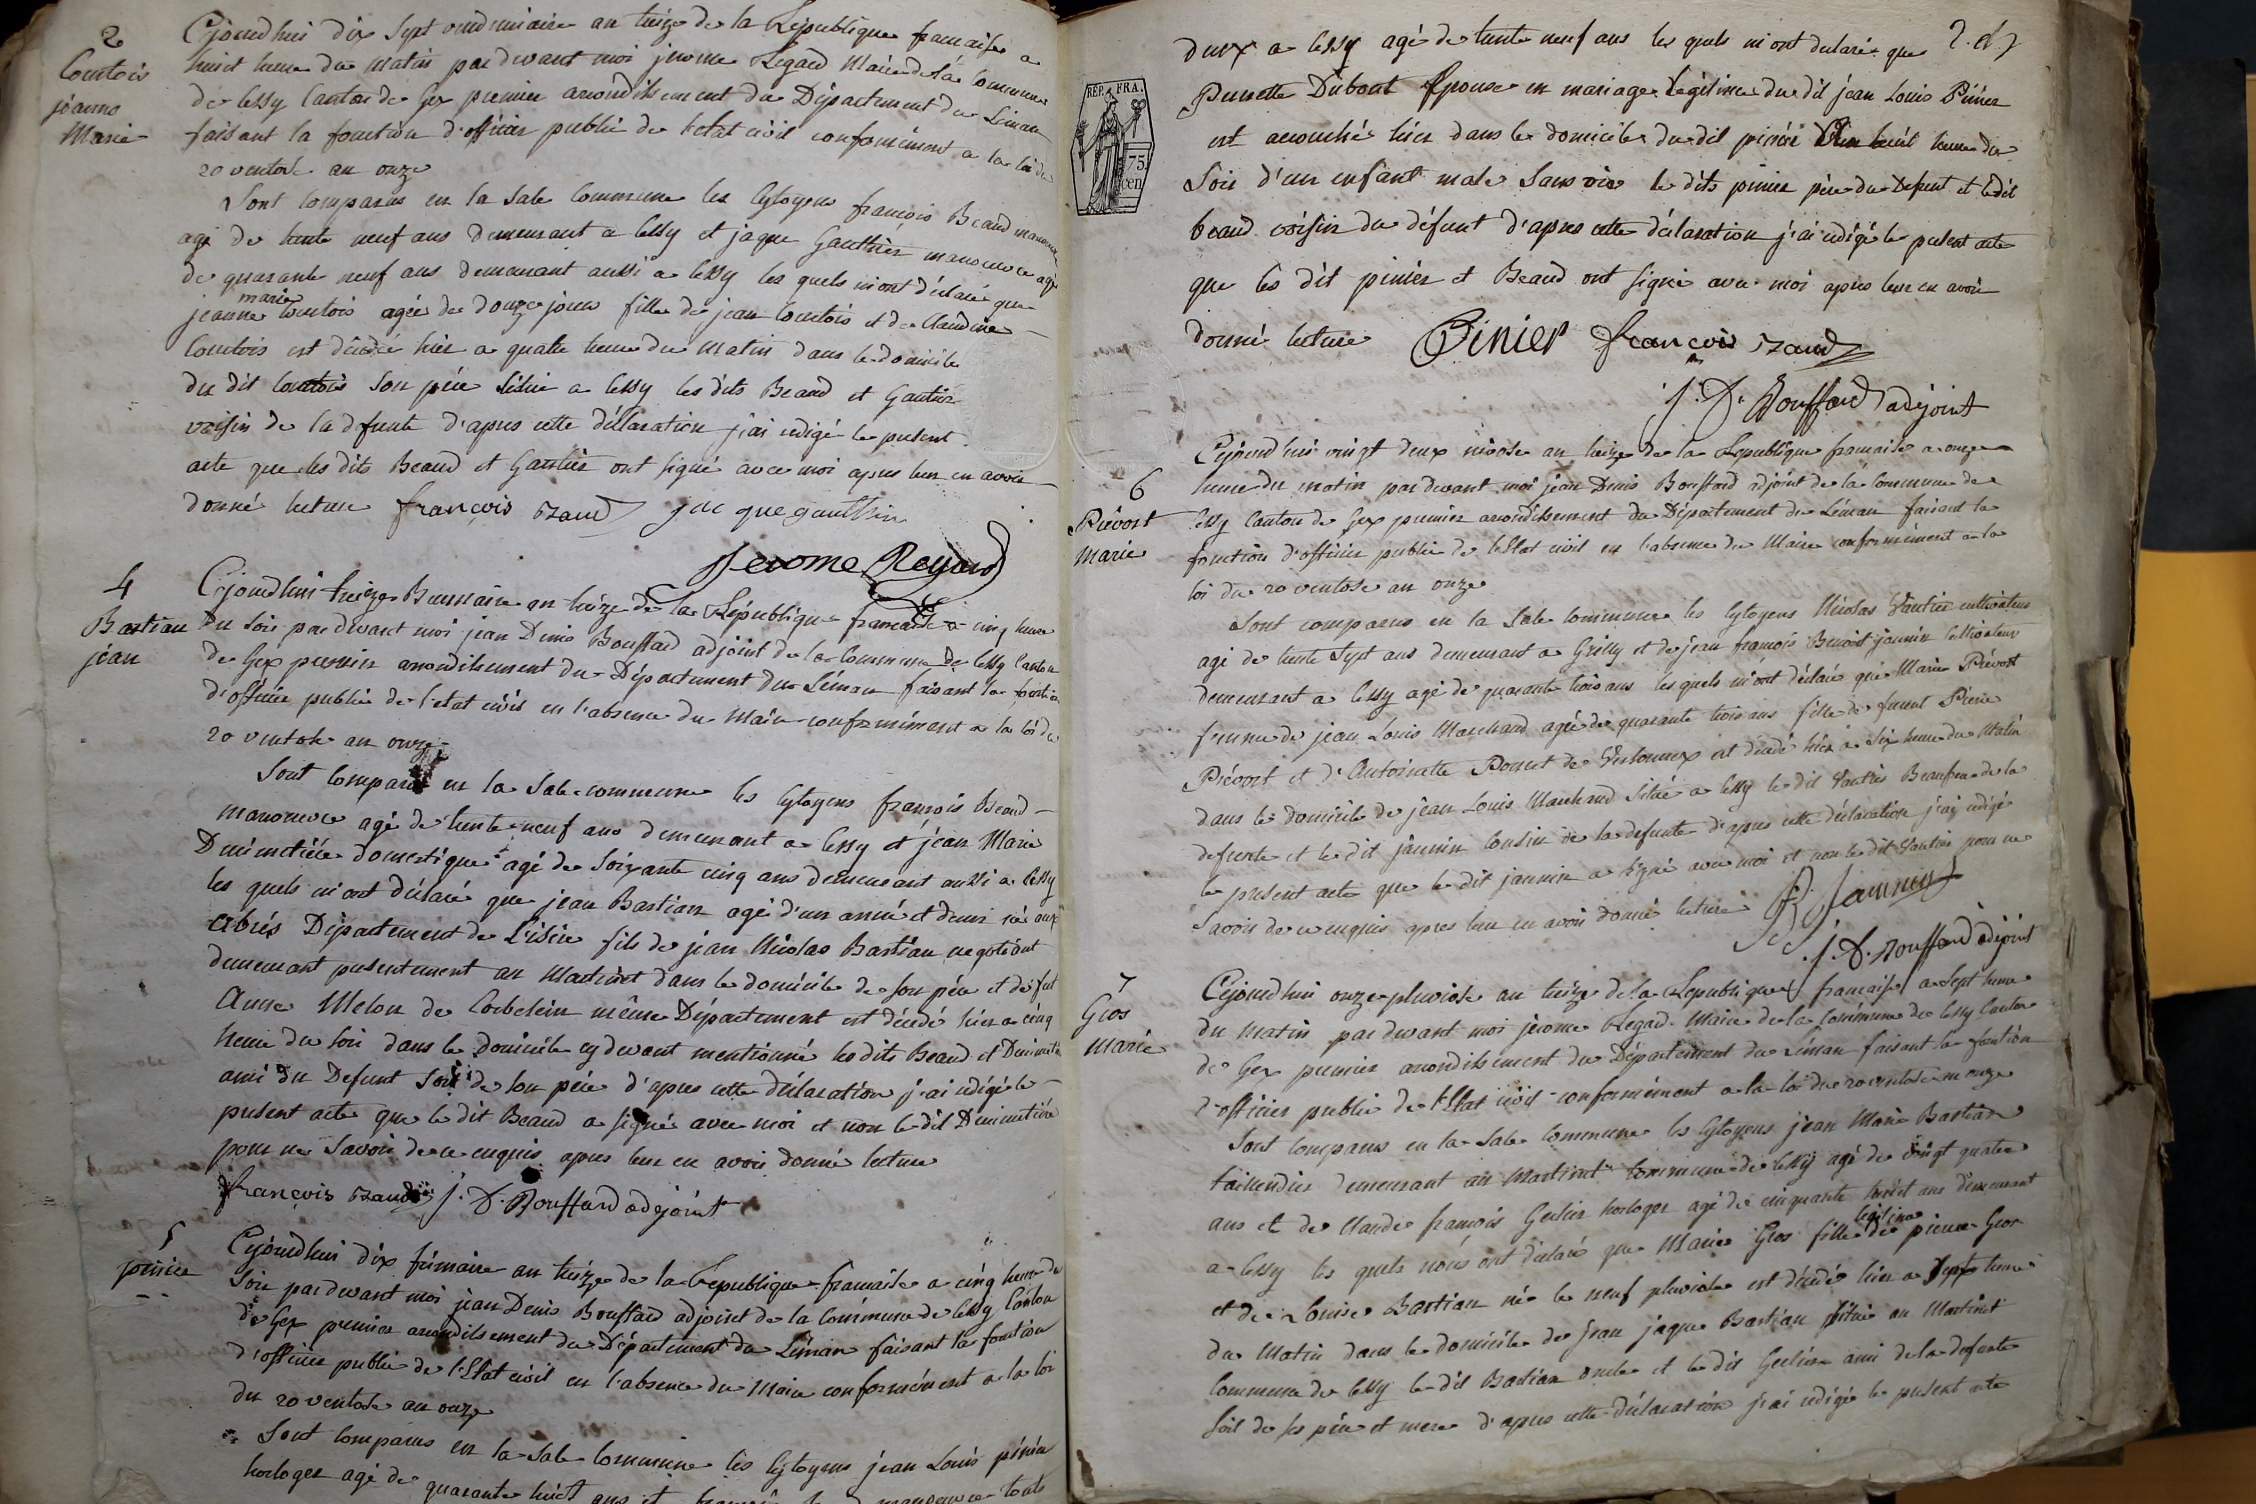 2
Courtois
jeanne
Marie
Cejourdhui dix Sept vendemiaire an treize de la Republique francaise a
huit heure du matin par devant moi jerome Regard Maire de la Commune
de Cessy Canton de Gex premier arrondissement du Département du Léman
faisant la fonction d'officier public de l'etat civil conformément a la loi du
20 ventose an onze
Sont comparus en la Sale Commune les Cytoyens françois Beaud manoeuvre
agé de trente neuf ans demeurant a Cessy et jaque Gauthier manoeuvre agé
de quarante neuf ans demeurant aussi a Cessy les quels m'ont déclaré que
marie
jeanne Courtois agée de douze jours fille de jean Courtois et de Claudine
Courtois est décédé hier a quatre heure du matin dans le domicile
du dit Courtois Son père Situé a Cessy les dits Beaud et Gautier
voisin de la defunte d'apres cette déclaration j'ai redigé le present
acte que les dits Beaud et Gautier ont signé avec moi apres leur en avoir
donné lecture françois Baud jacque gauthier
Jerome Regard
4
Bastian
jean
Cejourdhui treize Brumaire an treize de la République francaise a cinq heure
du soir par devant moi jean Denis Bouffard adjoint de la Commune de Cessy Canton
de Gex premier arrondissement du Département du Léman faisant la fonction
d'officier public de l'etat civil en l'absence du Maire conformément a la loi du
20 ventose an onze
Sont comparus en la Sale commune les Cytoyens françois Beaud
manoeuvre agé de trente neuf ans demeurant a Cessy et jean Marie
domestique agé de Soixante cinq ans demeurant aussi a Cessy
les quels m'ont déclaré que jean Bastian agé d'un année et demi né aux
abrés Département de L'isère fils de jean Nicolas Bastian negotiant
demeurant presentement au Martinet dans le domicile de son père et de feu
Anne Melon de Corbelein même Département est décédé hier a cinq
heure du soir dans le Domicile cy devant mentionné les dits Beaud et
ami du Defunt Soit de son père d'apres cette déclaration j'ai redigé le
present acte que le dit Beaud a signé avec moi et non le dit
pour ne Savoir de ce enquis apres leur en avoir donné lecture
françois Baud J. D. Bouffard adejoint
5
pinier
Cejourdhui dix frimaire an treize de la République francaise a cinq heure du
Soir par devant moi jean Denis Bouffard adjoint de la Commune de Cessy Canton
de Gex premier arrondissement du Département du Léman faisant la fonction
d'officier public de l'Etat civil en l'absence du Maire conformément a la loi
du 20 ventose an onze
Sont comparus en la Sale Commune les Cytoyens jean Louis pinier
horloger agé de quarante huit ans et manoeuvre touts
deux a Cessy agé de trente neuf ans les quels m'ont declaré que
Pernette Dubout Epouse en mariage Légitime du dit jean Louis Pinier
est accouché hier dans le domicile du dit pinier huit heure du
Soir d'un enfant male Sans vie le dits pinier père du Defunt et le dit
beaud voisin du défunt d'apres cette déclaration j'ai redigé le present acte
que les dit pinier et Beaud ont signé avec moi apres leur en avoir
donné lecture Pinier françois Baud
J. D. Bouffard adejoint
REP. FRA.
75
cen
6
Prévost
Marie
Cejourdhui vingt deux nivose an treize de la Republique francaise a onze
heure du matin par devant moi jean Denis Bouffard adjoint de la Commune de
Cessy Canton de Gex premier arrondissement du Département du Léman faisant la
fonction d'officier public de l'Etat civil en l'absence du Maire conformément a la
loi du 20 ventose an onze
Sont comparus en la Sale Commune les Cytoyens Nicolas Vautier cultivateur
agé de trente Sept ans demeurant a Grilly et de jean françois Benoit jannin cultivateur
demeurant a Cessy agé de quarante trois ans les quels m'ont déclaré que Marie Prévost
femme de jean Louis Marchand agée de quarante trois ans fille de feu Pierre
Prévost et d'Antoinette Ponset de Versonnex est décédé hier a Six heure du Matin
dans le domicile de jean Louis Marchand Situé a Cessy le dit Vautier Beaufrere de la
defunte et le dit jannin Cousin de la defunte d'apres cette déclaration j'ai redigé
le present acte que le dit jannin a signé avec moi et non le dit Vautier pour ne
Savoir de ce enquis apres leur en avoir donné lecture Jannin
J. D. Bouffard adejoint
7
Gros
Marie
Cejourdhui onze pluviose an treize de la Republique francaise a Sept heure
du Matin par devant moi jerome Regard Maire de la Commune de Cessy Canton
de Gex premier arrondissement du Département du Léman faisant la fonction
d'officier public de l'Etat civil conformément a la loi du 20 ventose an onze
Sont comparus en la Sale Commune les Cytoyens jean Marie Bastian
taillandier demeurant au Martinet Commune de Cessy agé de vingt quatre
ans et de Claude françois horloger agé de cinquante huit ans demeurant
a Cessy les quels nous ont déclaré que Marie Gros fille legitime de pierre Gros
et de Louise Bastian née le neuf pluviose est décédé hier a Sept heure
du Matin dans le domicile de jean jaque Bastian Situé au Martinet
Commune de Cessy le dit Bastian oncle et le dit ami de la defunte
Soit de ses père et mere d'apres cette déclaration j'ai redigé le present acte